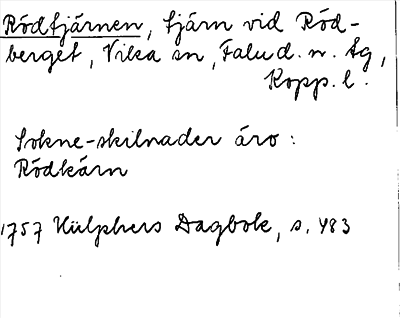 Rödtjärnen, tjärn vid Röd-
berget, Vika sn, Falu d. n. tg,
Kopp. l.
Sokne-skilnader äro :
Rödkärn
1757 Hülphers Dagbok, s. 483